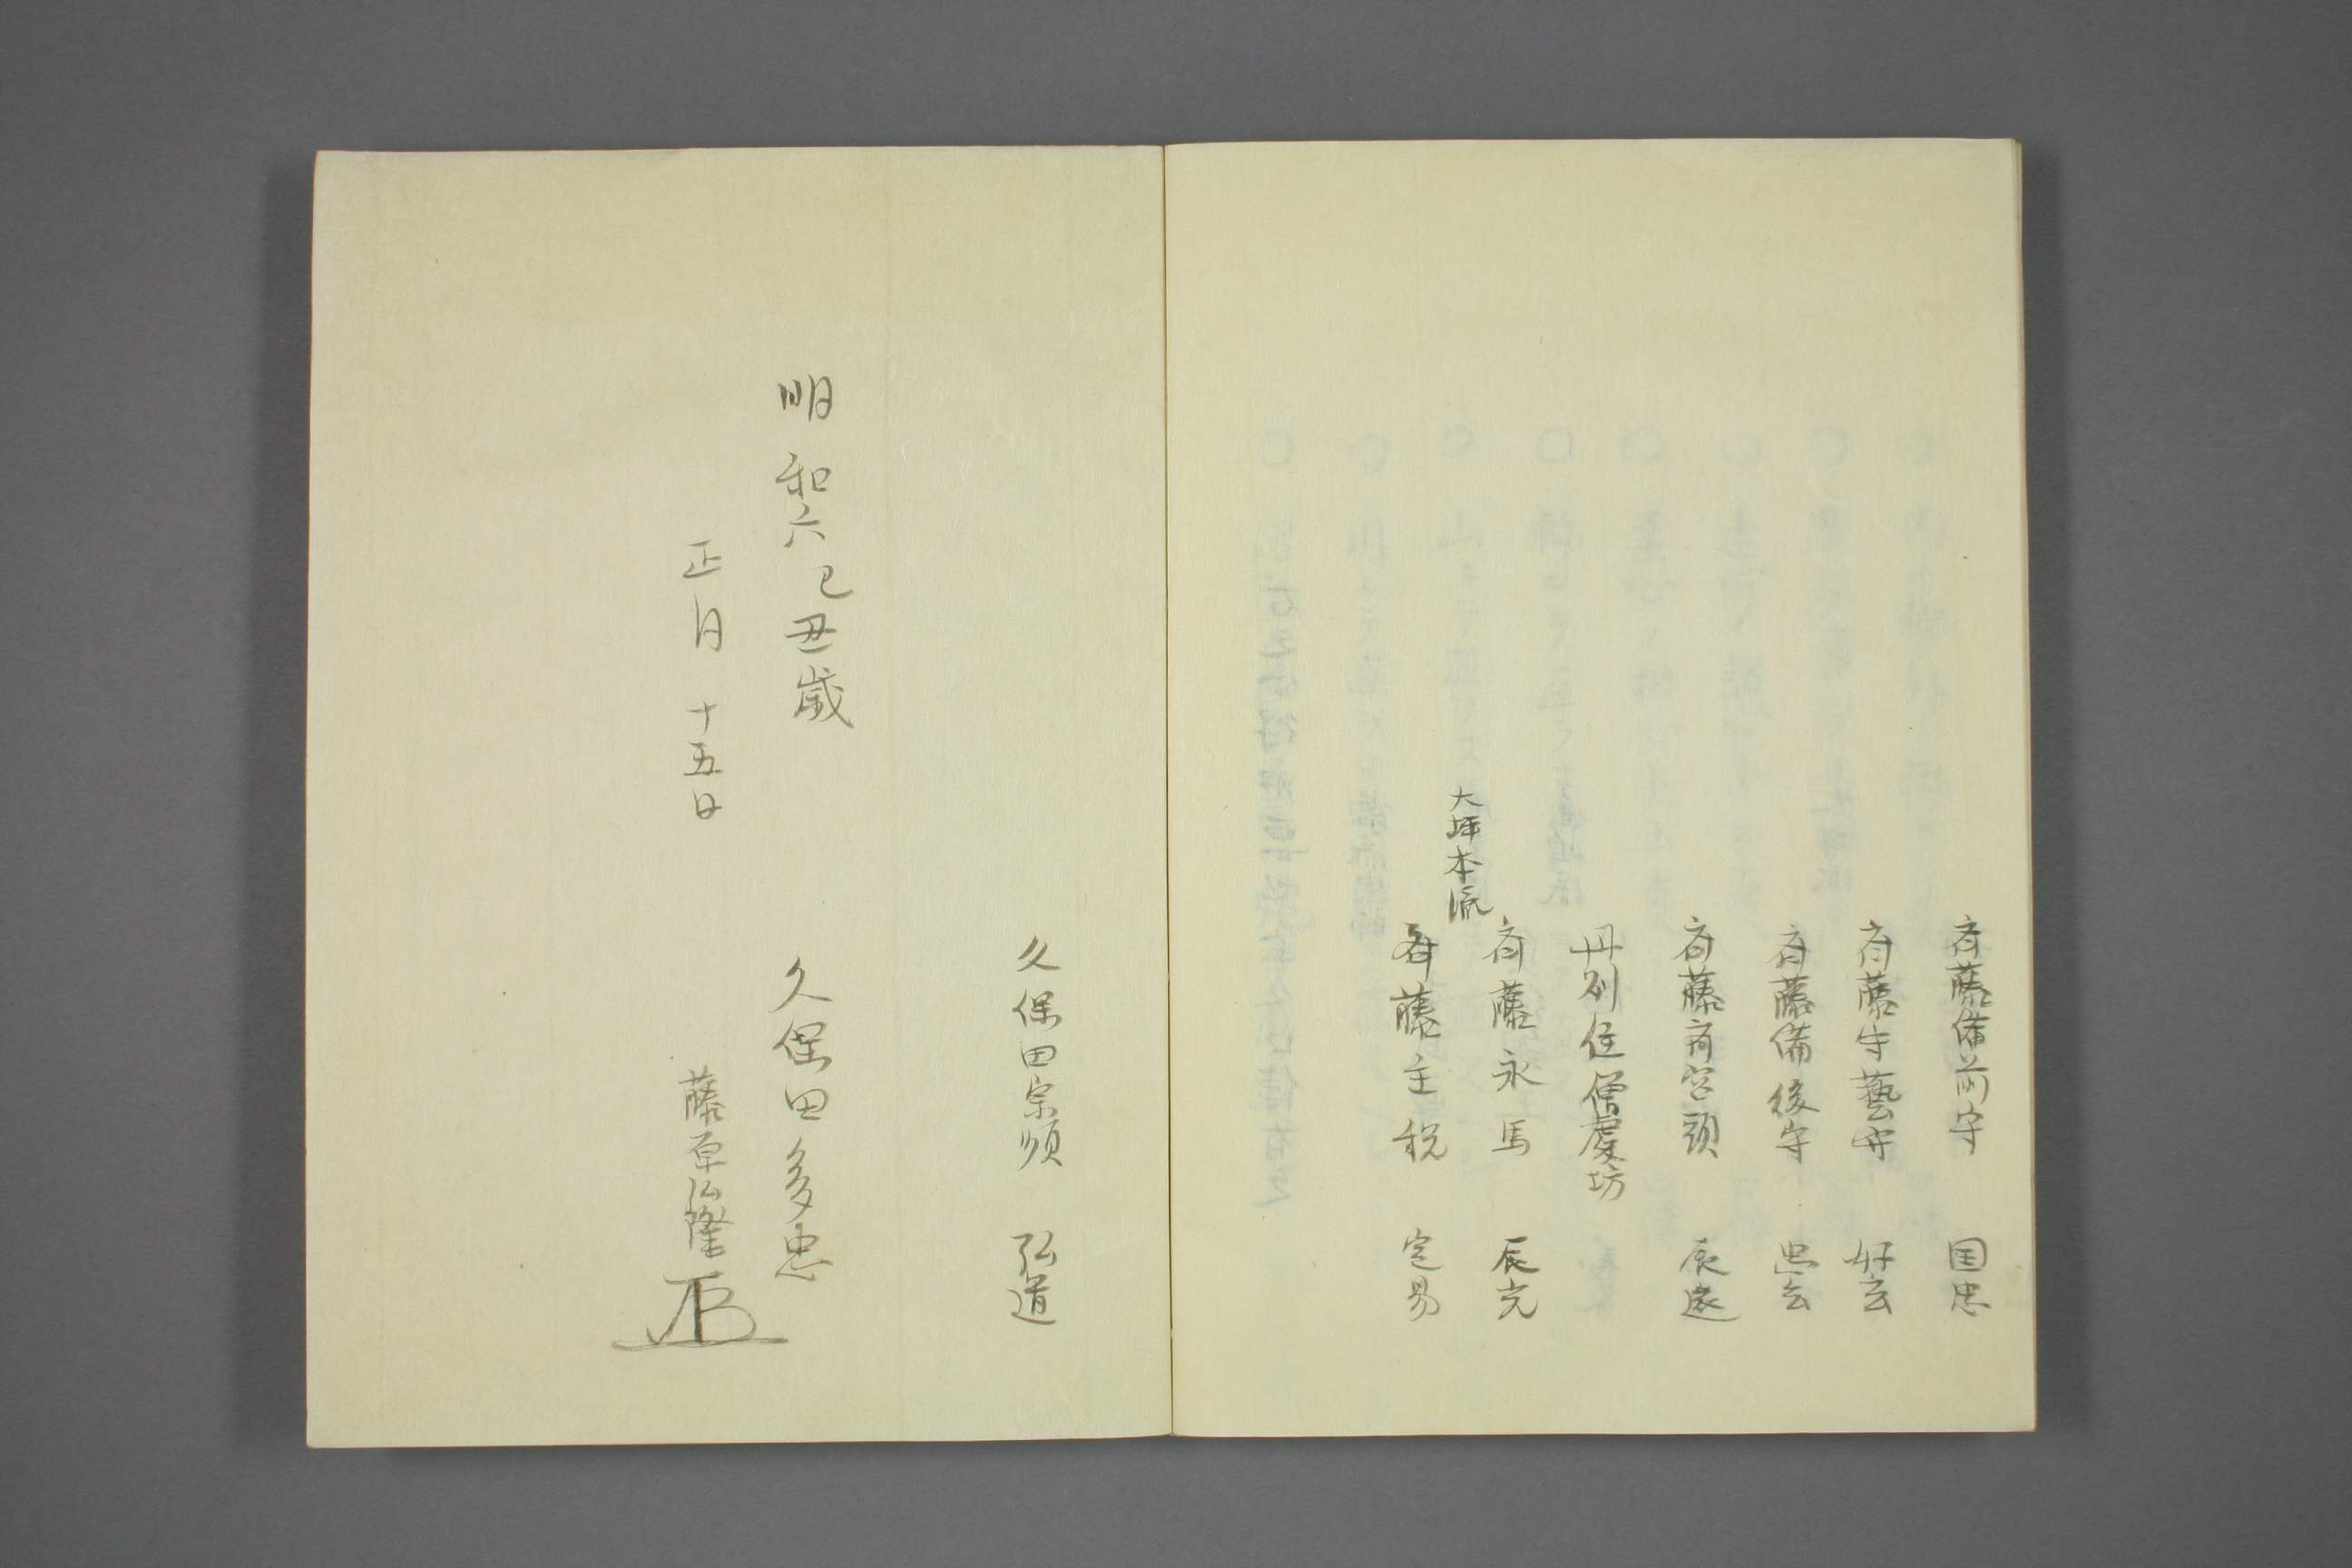 斉藤備前守 国忠
斉藤安藝守 好玄
斉藤備後守 忠玄
斉藤斉宮頭 辰遠
丹州住僧慶坊
斉藤永馬 辰光
大坪本流
斉藤主税 定易
久保田宗順 弘道
明和六己丑歳
久保田多忠
正月 十五日
藤原弘隆